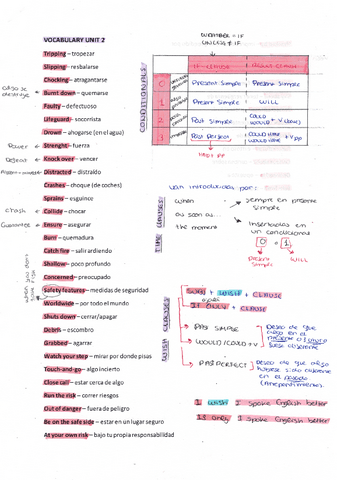 VOCABULARY UNIT 2
Tripping – tropezar
Slipping – resbalarse
Chocking – atragantarse
algo se
Burnt down – quemarse
Faulty – defectuoso
Lifeguard – socorrista
Drown – ahogarse (en el agua)
Power → Strenght – fuerza
Defeat → Knock over – vencer
Distracted – distraído
Crashes – choque (de coches)
Sprains – esguince
Crash → Collide – chocar
Guarantee → Ensure – asegurar
Burn – quemadura
Catch fire – salir ardiendo
Shallow – poco profundo
Concerned – preocupado
Safety features – medidas de seguridad
Worldwide – por todo el mundo
Shuts down – cerrar/apagar
Debris – escombro
Grabbed – agarrar
Watch your step – mirar por donde pisas
Touch-and-go – algo incierto
Close call – estar cerca de algo
Run the risk – correr riesgos
Out of danger – fuera de peligro
Be on the safe side – estar en un lugar seguro
At your own risk – bajo tu propia responsabilidad
UNLESS ≠ IF
CONDITIONALS
IF CLAUSE
RESULT CLAUSE
0 Present Simple Present Simple
1 Present Simple WILL
2 Past Simple COULD WOULD + V
3 Past Perfect COULD HAVE WOULD HAVE + Vpp
HAD + PP
TIME CLAUSES
van introducidas por:
when
as soon as...
the moment
siempre en presente simple
Insertadas en un condicional
0 o 1
Present Simple
WILL
WISH CLAUSES
SUBJ + WISH + CLAUSE
IF ONLY + CLAUSE
PAST SIMPLE
WOULD/COULD + V
Deseo de que algo en el presente o futuro fuese diferente
PAST PERFECT
Deseo de que algo hubiese sido diferente en el pasado (Arrepentimiento)
I wish I spoke English better
If only I spoke English better